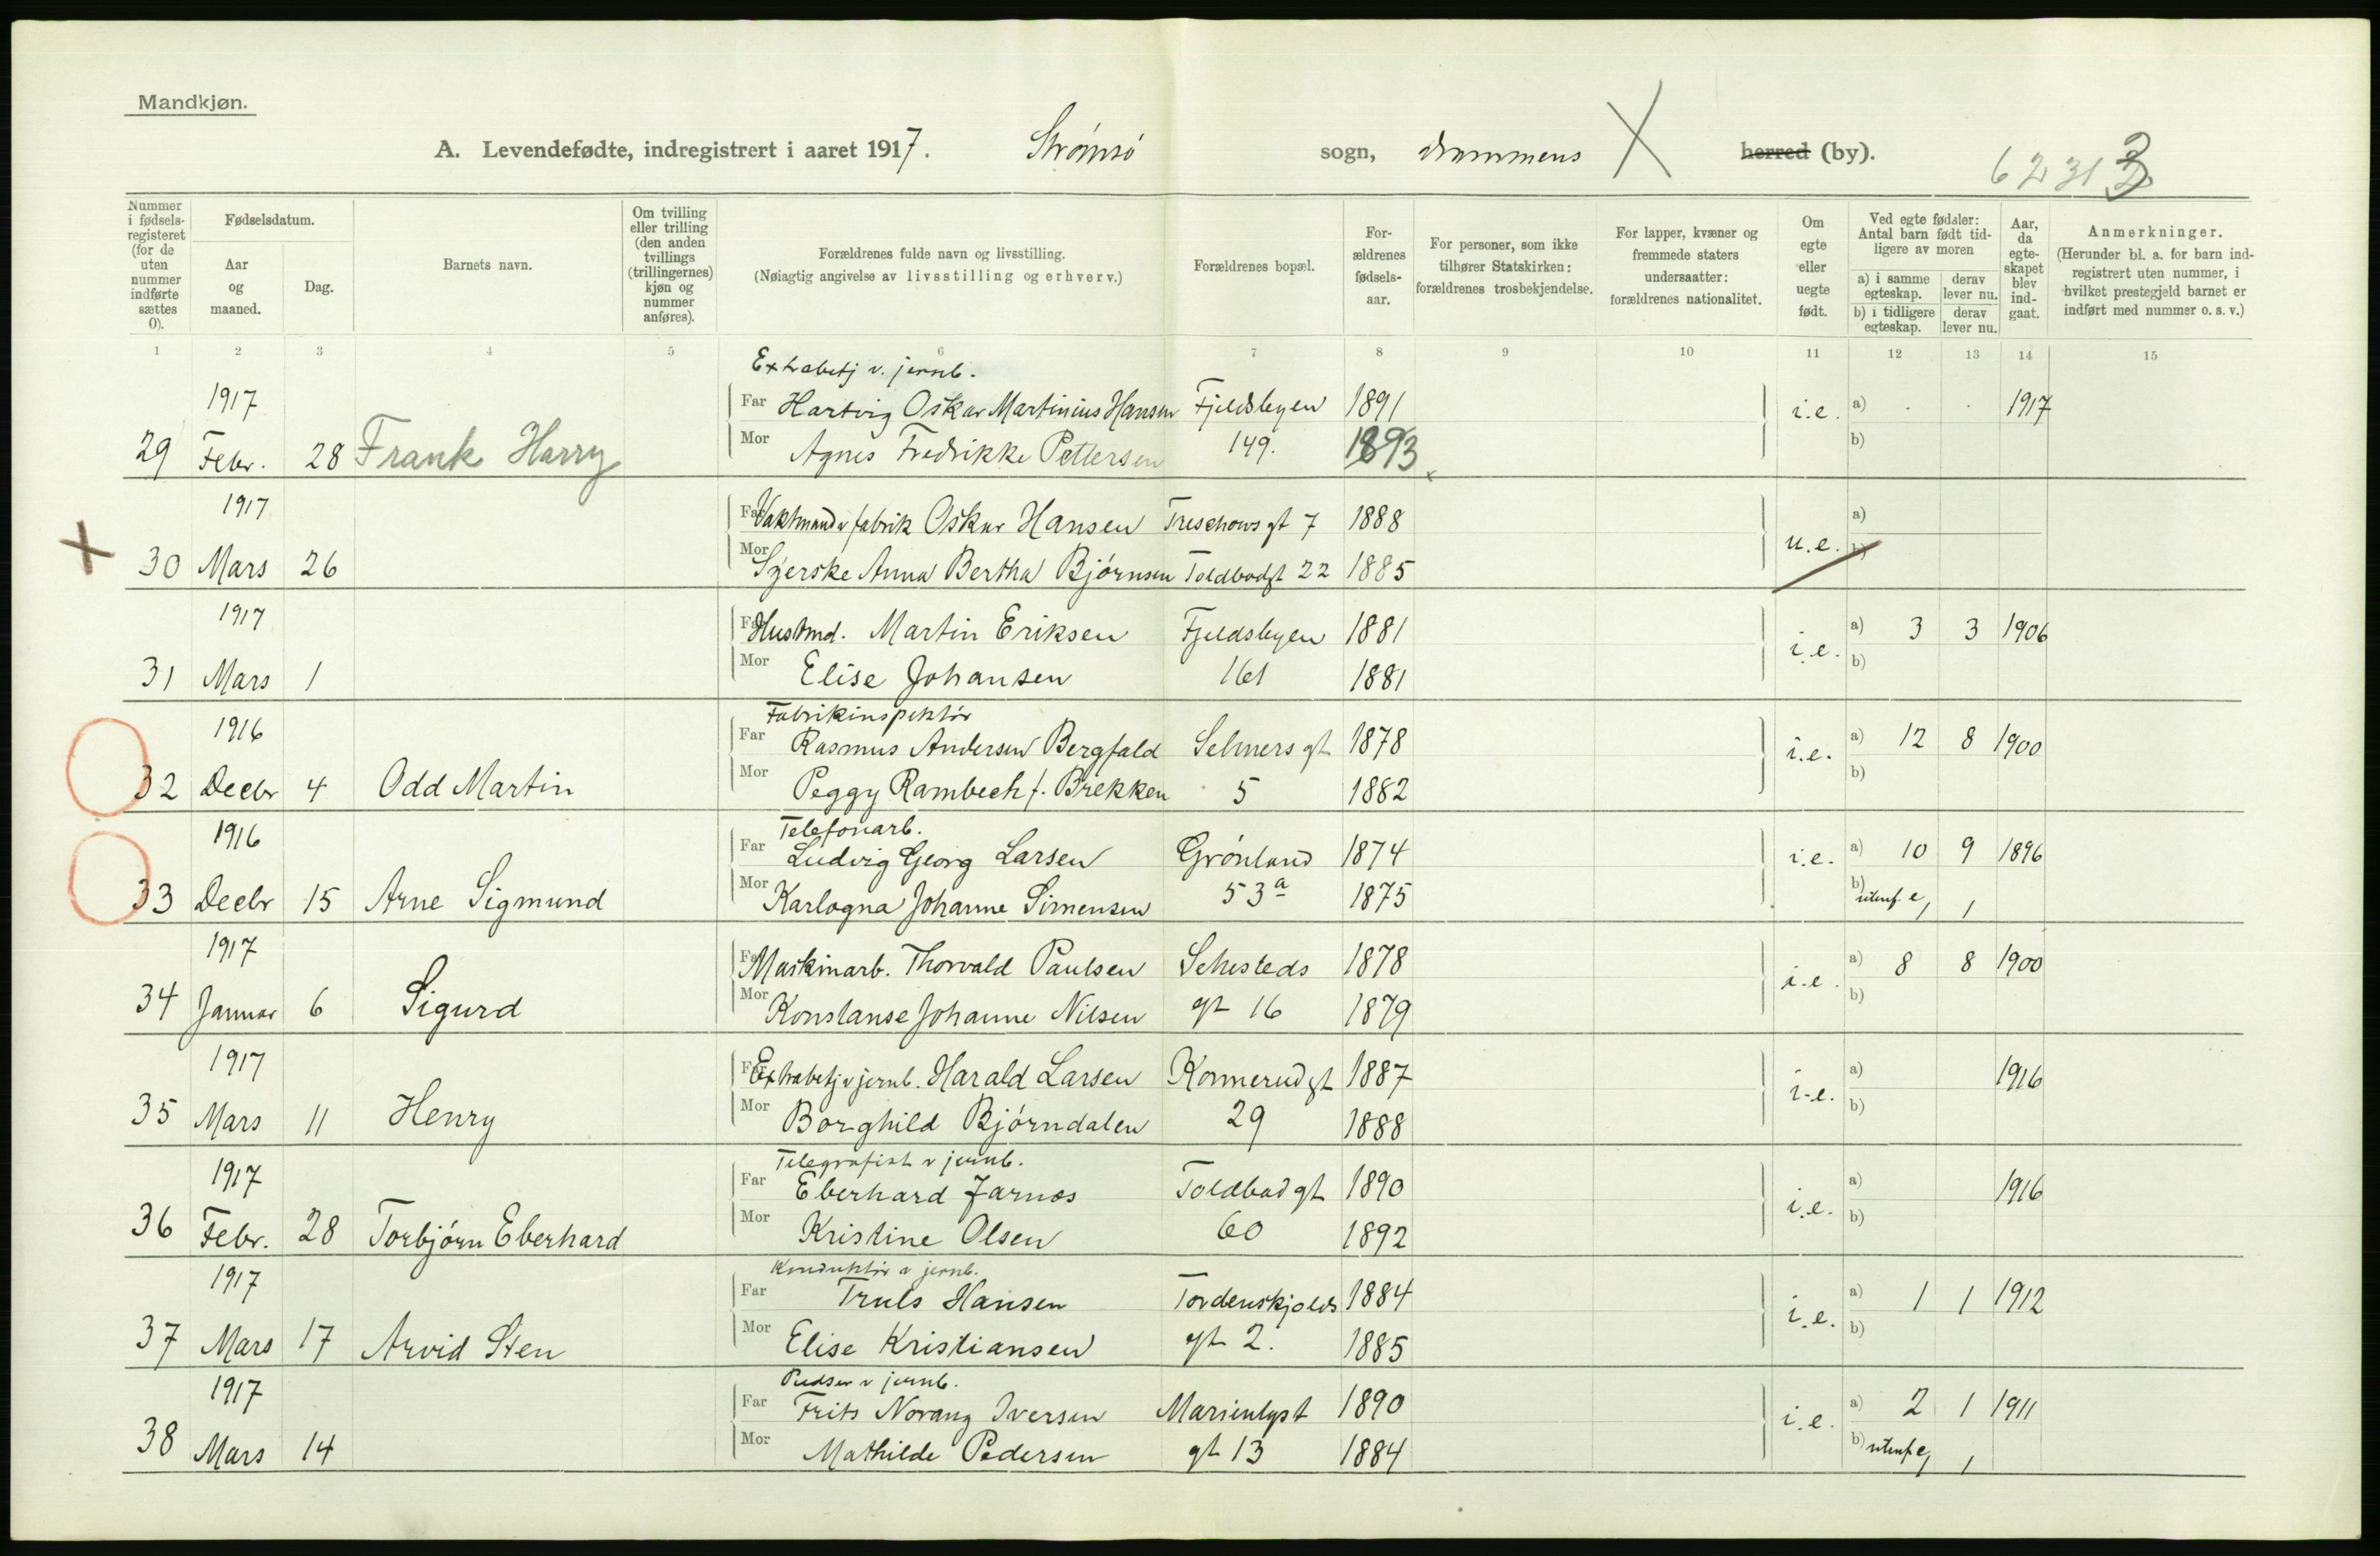 Mandkjøn.
A. Levendefødte, indregistrert i aaret 1917. Strømsø sogn, Drammens herred (by).
6231
Nummer i fødselsregisteret (for de uten nummer indførte sættes 0).
Fødselsdatum.
Aar og maaned.
Dag.
Barnets navn.
Om tvilling eller trilling (den anden tvillings (trillingernes) kjøn og nummer anføres).
Forældrenes fulde navn og livsstilling.
(Nøiagtig angivelse av livsstilling og erhverv.)
Forældrenes bopæl.
Forældrenes fødselsaar.
For personer, som ikke tilhører Statskirken: forældrenes trosbekjendelse.
For lapper, kvæner og fremmede staters undersaatter: forældrenes nationalitet.
Om egte eller uegte født.
Ved egte fødsler: Antal barn født tidligere av moren
a) i samme egteskap. derav lever nu.
b) i tidligere egteskap. derav lever nu.
Aar, da egteskapet blev indgaat.
Anmerkninger.
(Herunder bl. a. for barn indregistrert uten nummer, i hvilket prestegjeld barnet er indført med nummer o. s. v.)
1 2 3 4 5 6 7 8 9 10 11 12 13 14 15
Extrabetj v. jernb.
1917 Far Hartvig Oskar Martinius Hansen Fjeldsbyen 1891 i.e. a) . . 1917
29 Febr. 28 Frank Harry Mor Agnes Fredrikke Pettersen 149. 1893 b)
1917 Far Vaktmand v fabrik Oskar Hansen Treschows gt 7 1888 u.e. a)
30 Mars 26 Mor Syerske Anna Bertha Bjørnsen Toldbodgt 22 1885 b)
1917 Far Hustmd. Martin Eriksen Fjeldsbyen 1881 i.e. a) 3 3 1906
31 Mars 1 Mor Elise Johansen 161 1881 b)
Fabrikinspektør
1916 Far Rasmus Andersen Bergfald Selmers gt 1878 i.e. a) 12 8 1900
32 Decbr 4 Odd Martin Mor Peggy Rambech f. Brekken 5 1882 b)
Telefonarb.
1916 Far Ludvig Georg Larsen Grønland 1874 i.e. a) 10 9 1896
33 Decbr 15 Arne Sigmund Mor Karlogna Johanne Simensen 53a 1875 b) utenf. e, 1
1917 Far Maskinarb. Thorvald Paulsen Sehesteds 1878 i.e. a) 8 8 1900
34 Januar 6 Sigurd Mor Konstanse Johanne Nilsen gt 16 1879 b)
1917 Far Extrabetj v jernb. Harald Larsen Konnerudgt 1887 i.e. a) 1916
35 Mars 11 Henry Mor Borghild Bjørndalen 29 1888 b)
Telegrafist v jernb.
1917 Far Eberhard Jarnæs Toldbodgt 1890 i.e. a) 1916
36 Febr. 28 Torbjørn Eberhard Mor Kristine Olsen 60 1892 b)
Konduktør v jernb.
1917 Far Truls Hansen Tordenskjolds 1884 i.e. a) 1 1 1912
37 Mars 17 Arvid Sten Mor Elise Kristiansen gt 2. 1885 b)
Pudser v jernb.
1917 Far Frits Norang Iversen Marienlyst 1890 i.e. a) 2 1 1911
38 Mars 14 Mor Mathilde Pedersen gt 13 1884 b) utenf e, 1